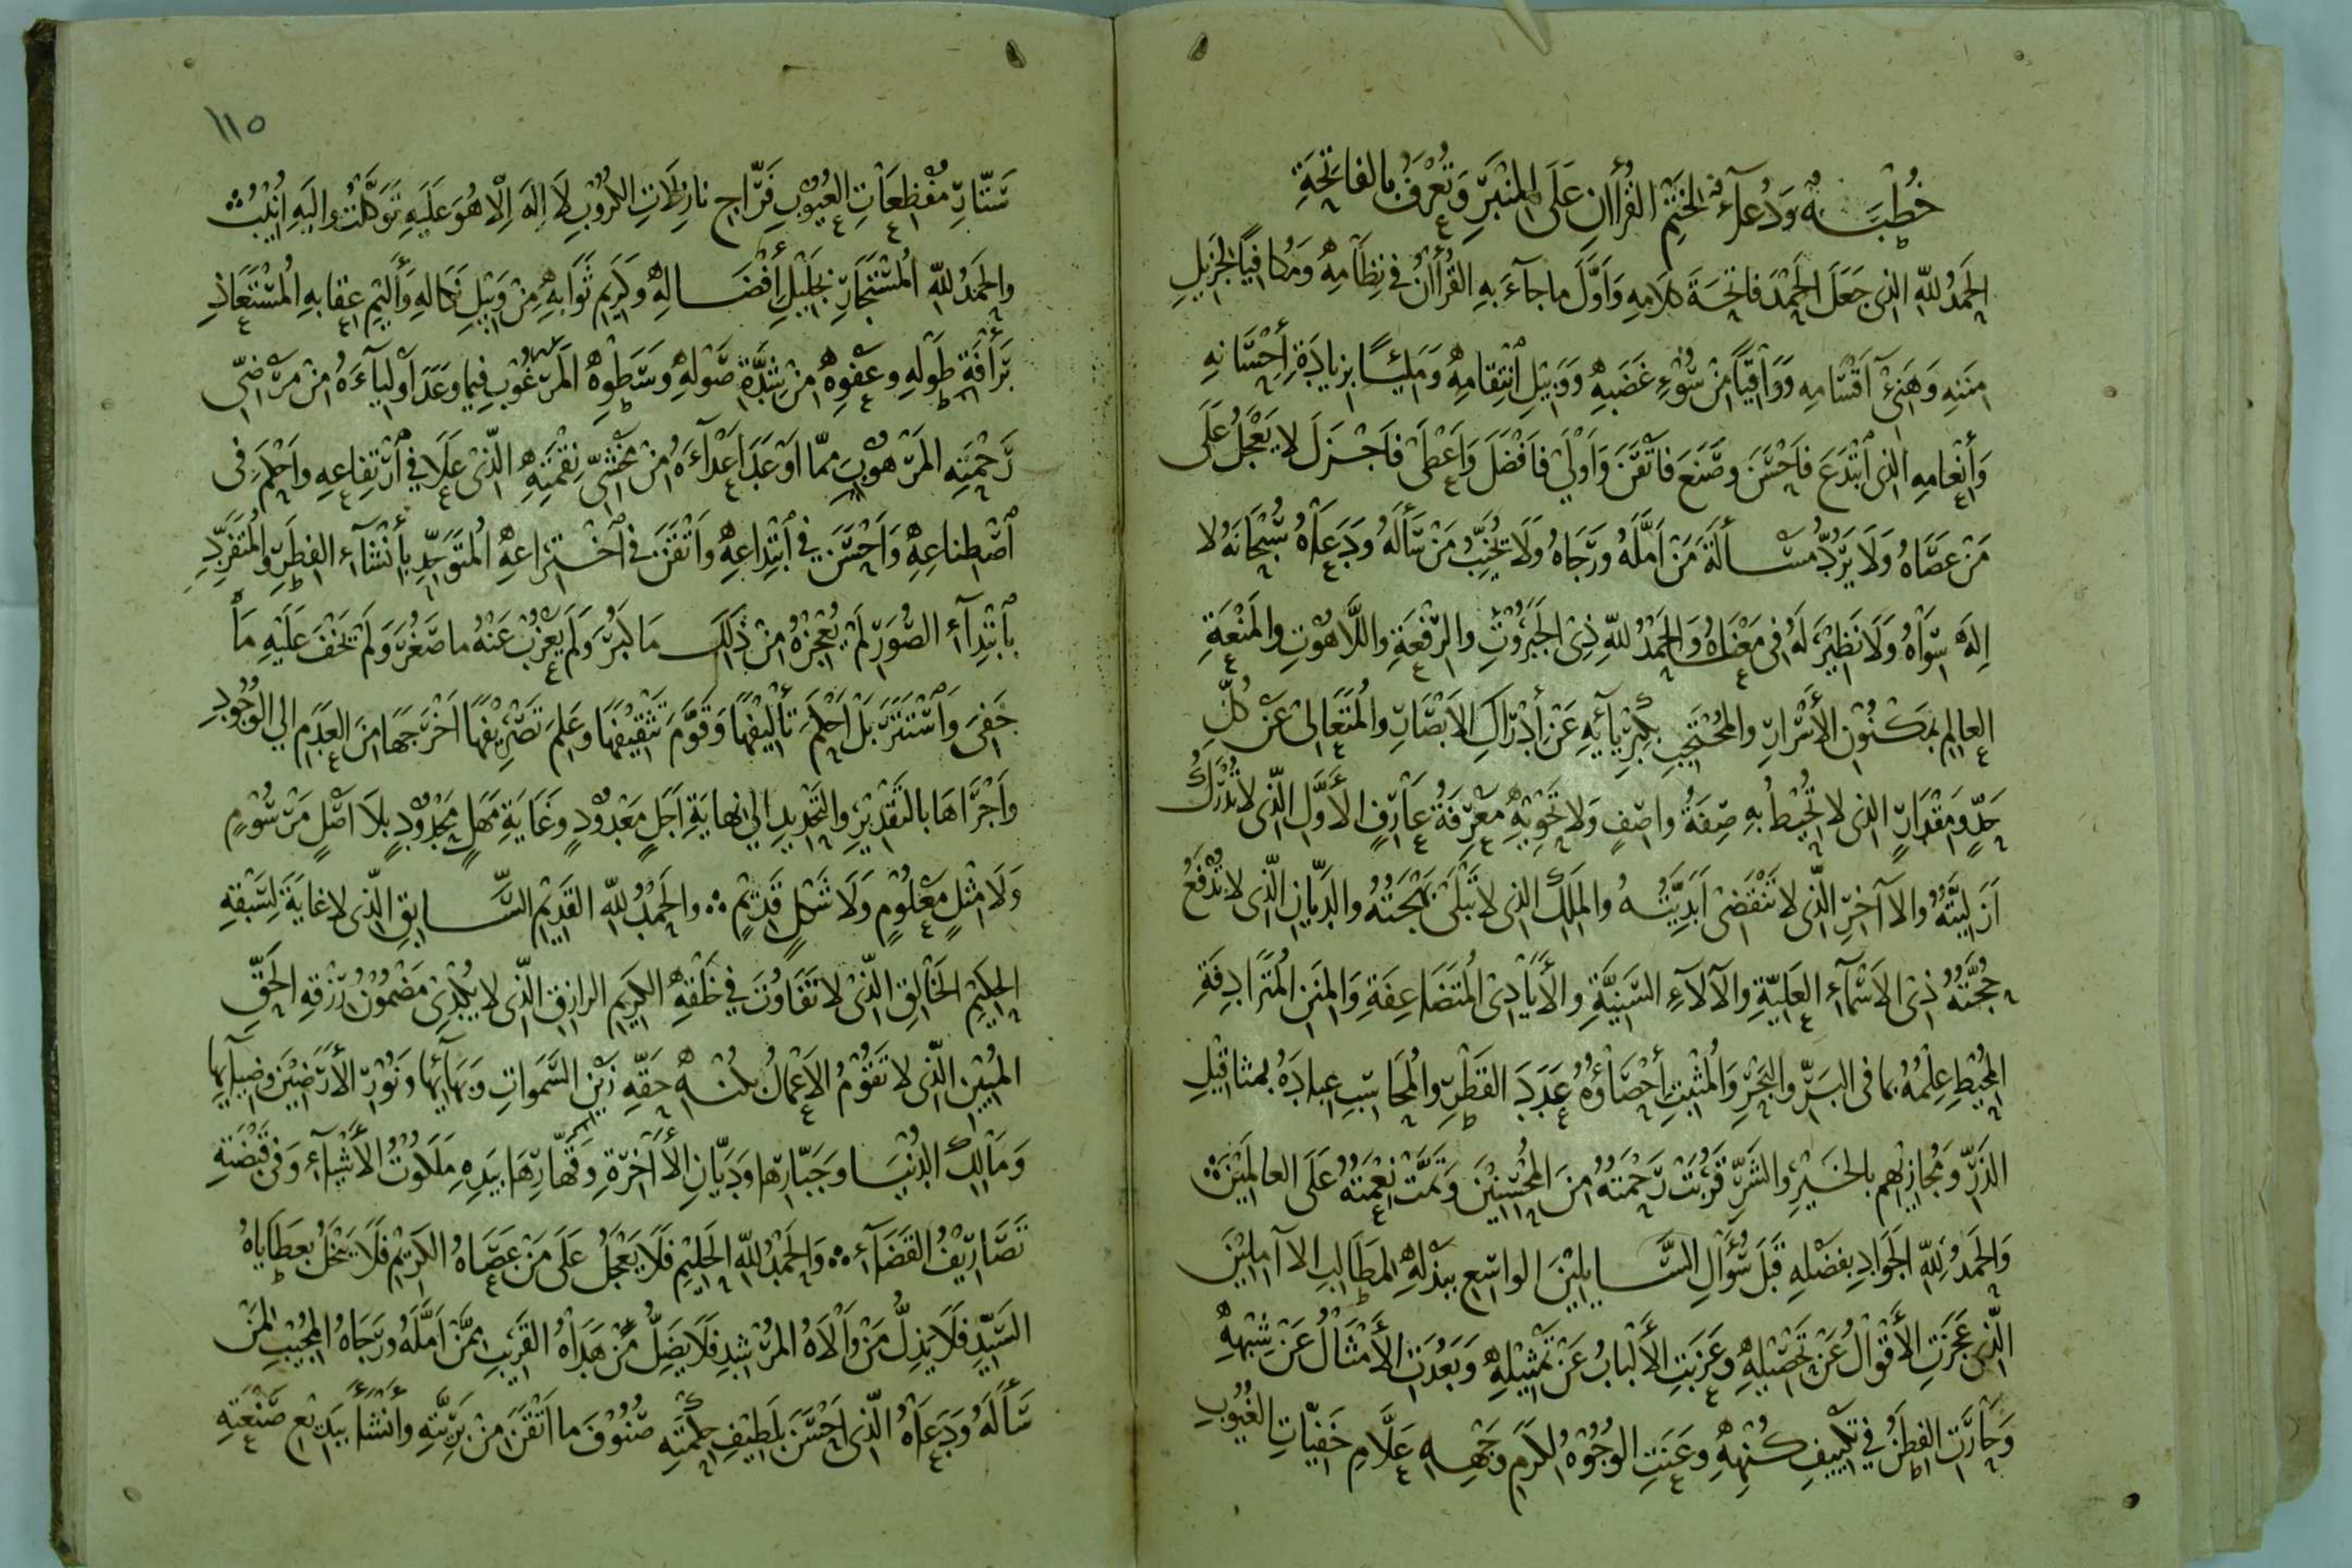 خُطْبَةٌ وَدُعَآءٌ لِخَتْمِ القُرْأَانِ عَلَى المِنْبَرِ وَتُعْرَفُ بِالفَاتِحَةِ
الحَمْدُ لله الذى جَعَلَ الحَمْدَ فَاتِحَةَ كلامِهِ وَأَوَّلَ ما جآءَ بِهِ القُرْأَانُ فى نِظَامِهِ وَمُكافِيًا لِجَزِيلِ
مِنَنِهِ وَهَنِىْءِ أَقْسَامِهِ وَوَاقِيًا مِنْ سُوْءِ غَضَبِهِ وَوَبِيْلِ انْتِقامِهِ وَمَلِيًا بِزِيادَةِ إِحْسَانِهِ
وَأِنْعامِهِ الذى ابْتَدَعَ فأَحْسَنَ وصَنَعَ فأَتْقَنَ وَأَوْلَىٰ فأَفْضَلَ وَأَعْطَىٰ فأَجْزَلَ لا يَعْجَلُ عَلَى
مَنْ عَصَاهُ وَلَا يَرُدُّ مَسْألَةَ مَنْ أَمَّلَهُ وَرَجَاهُ وَلَا يُخَيِّبُ مَنْ سَأَلَهُ وَدَعَاهُ سُبْحَانَهُ لا
إِلهَ سِوَاهُ وَلَا نَظِيْرَ لَهُ فى مَعْنَاهُ وَالحَمْدُ للهِ ذِى الجَبَرُوْتِ والرِّفْعَةِ واللَّاهُوْتِ والمَنْعَةِ
العالِمِ بمَكْنُوْنِ الأَسْرَارِ والمُحْتَجِبِ بِكِبْرِيآئِهِ عَنْ إِدْرَاكِ الأَبْصَارِ والمُتَعَالِىْ عَنْ كُلِّ
حَدٍّ وَمِقْدَارٍ الذى لا تُحِيْطُ بِهِ صِفَةُ واصِفٍ وَلَا تَحْوِيْهِ مَعْرِفَةُ عَارِفٍ الأَوَّلِ الَّذى لا تُدْرَكُ
أَزَلِيَّتُهُ والأآخِرِ الَّذى لا تَنْقَضِىْ أَبَدِيَّتُهُ والمَلِكِ الذى لا تَبْلَىٰ بَهْجَتُهُ والدَّيَّانِ الَّذى لا تُدْفَعُ
حُجَّتُهُ ذِى الأَسْمَآءِ العَلِيَّةِ والآلآءِ السَّنِيَّةِ والأَيَادِى المُتَضَاعِفَةِ وَالمِنَنِ المُتَرَادِفَةِ
المُحِيْطِ عِلْمُهُ بما فى البَرِّ والبَحْرِ وَالمُثْبِتِ إِحْصَاؤُهُ عَدَدَ القَطْرِ والمُحَاسِبِ عِبادَهُ بمثاقِيْلِ
الذَّرِّ وَمُجَازِيْهِم بالخَيْرِ والشَّرِّ قَرُبَتْ رَحْمَتُهُ مِنَ المُحْسِنِيْنَ وَتَمَّتْ نِعْمَتُهُ عَلَى العالَمِيْنَ
وَالحَمْدُ لِلّهِ الجَوَادِ بِفَضْلِهِ قَبْلَ سُؤَالِ السَّايِلِيْنَ الواسِعِ بِبَذْلِهِ لِمَطَالِبِ الأآمِلِيْنَ
الَّذى عَجَزَتِ الأَقْوَالُ عَنْ تَحْصِيْلِهِ وعَزَبَتِ الأَلْبابُ عَنْ تَمْثِيْلِهِ وَبَعُدَتِ الأَمْثَالُ عَنْ شِبْهِهِ
وَحَارَتِ الفِطَنُ في تَكْيِيفِ كُنْهِهِ وعَنَتِ الوُجُوْهُ لِكَرَمِ وَجْهِهِ عَلَّامِ خَفِيَّاتِ الغُيُوْبِ
١١٥
سَتَّارِ مُفْظِعَاتِ العُيُوْبِ فَرَّاجِ نازِلَاتِ الكُرُوْبِ لَا إِلهَ إِلّا هُوَ عَلَيْهِ تَوَكَّلْتُ وإِلَيْهِ أُنِيْبُ
والحَمْدُ للهِ المُسْتَجَارِ بِجَلِيْلِ إِفْضَالِهِ وكَرِيْمِ ثَوَابِهِ مِنْ وَبِيْلِ نَكالِهِ وَأَلِيْمِ عِقابِهِ المُسْتَعَاذِ
بِرَأْفَةِ طَوْلِهِ وعَفْوِهِ مِنْ شِدَّةِ صَوْلِهِ وسَطْوِهِ المَرْغُوْبِ فِيما وعَدَ أَوْلِيآءَهُ مِنْ مَرْضِىِّ
رَحْمَتِهِ المَرْهُوْبِ مِمّا أَوْعَدَ أَعْدَآءَهُ مِنْ مَخْشِىِّ نِقْمَتِهِ الَّذىْ عَلَا فِي ارْتِفاعِهِ وأَحْكَمَ فى
اصْطِناعِهِ وَأَحْسَنَ فى ابْتِدَاعِهِ وأَتْقَنَ فى اخْتِرَاعِهِ المُتَوَحِّدِ بِإِنْشَآءِ الفِطَرِ والمُتَفَرِّدِ
بِابْتِدَآءِ الصُّوَرِ لَمْ يُعْجِزْهُ مِنْ ذٰلِكَ مَا كَبُرَ وَلَمْ يَعْزُبْ عَنْهُ ما صَغُرَ وَلَمْ يَخْفَ عَلَيْهِ مَا
خَفِىَ وَاسْتَتَرَ بَلْ أَحْكَمَ تَأْلِيْفَهَا وَقَوَّمَ تَثْقِيْفَهَا وعَلِمَ تَصْرِيْفَهَا أَخْرَجَهَا مِنَ العَدَمِ إلى الوُجُوْدِ
وأَجْرَاهَا بالتَّقْدِيْرِ والتَّحْدِيدِ إلى نهايَةِ أَجَلٍ مَعْدُوْدٍ وغَايَةِ مَهَلٍ مَحْدُوْدٍ بِلَا أَصْلٍ مَرْسُوْمٍ
وَلَا مِثْلٍ مَعْلُوْمٍ وَلَا شَكْلٍ قَدِيْمٍ والحَمْدُ للهِ القَدِيْمِ السَّابِقِ الَّذى لا غايَةَ لِسَبْقِهِ
الحَكِيْمِ الخَالِقِ الَّذىْ لا تَفَاوُتَ فى خَلْقِهِ الكَرِيْمِ الرازِقِ الَّذى لا يُكْدِىْ مَضْمُوْنُ رِزْقِهِ الحَقِّ
المُبِيْنِ الَّذى لا تَقُوْمُ الأَعْمَالُ بِكُنْهِ حَقِّهِ زَيْنِ السَّمٰوَاتِ وَبَهَآئِها وَنُوْرِ الأَرَضِيْنَ وضِيَآئِها
وَمَالِكِ الدُنْيَا وجَبّارِها ودَيّانِ الأآخِرَةِ وقَهّارِهَا بِيَدِهِ مَلَكُوْتُ الأَشْيآءِ وَفى قَبْضَتِهِ
تَصَارِيْفُ القَضَآءِ وَالحَمْدُ للهِ الحَلِيْمِ فَلَا يَعْجَلُ عَلَى مَنْ عَصَاهُ الكَرِيْمِ فَلَا يَبْخَلُ بعَطَايَاهُ
السَيِّدِ فَلَا يَذِلُّ مَنْ وَالَاهُ المُرْشِدِ فَلَا يَضِلُّ مَنْ هَدَاهُ القَرِيْبِ مِمَّنْ أَمَّلَهُ ورَجَاهُ المُجِيْبِ لِمَنْ
سَأَلَهُ وَدَعَاهُ الَّذى أَحْسَنَ بلَطِيْفِ حِكْمَتِهِ صُنُوْفَ ما أَتْقَنَ مِنْ بَرِيَّتِهِ وأَنْشَأَ بِبَدِيْعِ صَنْعَتِهِ